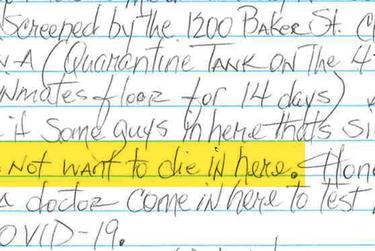 Screened by the 1200 Baker St. C
N-A (Quarantine Tank on the 4
Inmates floor for 14 days)
if some guys in here thats si
not want to die in here. Hon
a doctor come in here to test
OVID-19.